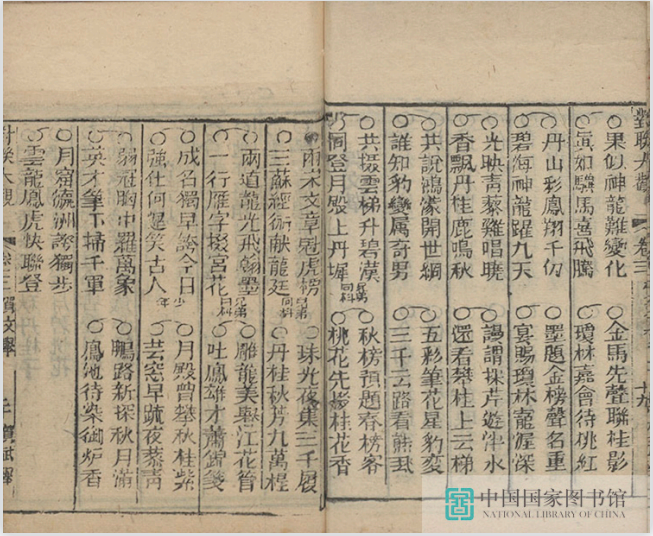 對聯大觀 卷三 十九
果似神龍難變化 金馬先聲聯桂影
真如驥馬喜飛騰 瓊林嘉會待桃紅
丹山彩鳳翔千仞 墨題金榜聲名重
碧海神龍躍九天 宴賜瓊林寵渥深
光映青藜雞唱曉 謾謂採芹遊泮水
香飄丹桂鹿鳴秋 還看攀桂上云梯
共說鴻蒙開世網 五彩筆花星豹變
誰知豹變属奇男 三千云路看熊飛
共攝雲梯升碧漢 秋榜預題春榜客
同登月殿上丹墀 兄弟同科 桃花先接桂花香
兩宋文章冠虎榜 珠光夜集三千履
三蘇經術献龍廷 兄弟同科 丹桂秋芳九萬程
兩道龍光飛翰墨 雕龍美譽江花管
一行雁字掇宮花 兄弟同科 吐鳳雄才蕭箋
成名獨早誇今日 少年 月殿曾攀秋桂紫
強仕何遲笑古人 芸窓早夜藜青
弱冠胸中羅萬象 鵬路新探秋月滿
英才筆下掃千軍 鳳池待染御炉香
月窟瀛洲誇獨步
雲龍鳳虎快聯登
大观 卷三 賀文學
中国国家图书馆
NATIONAL LIBRARY OF CHINA